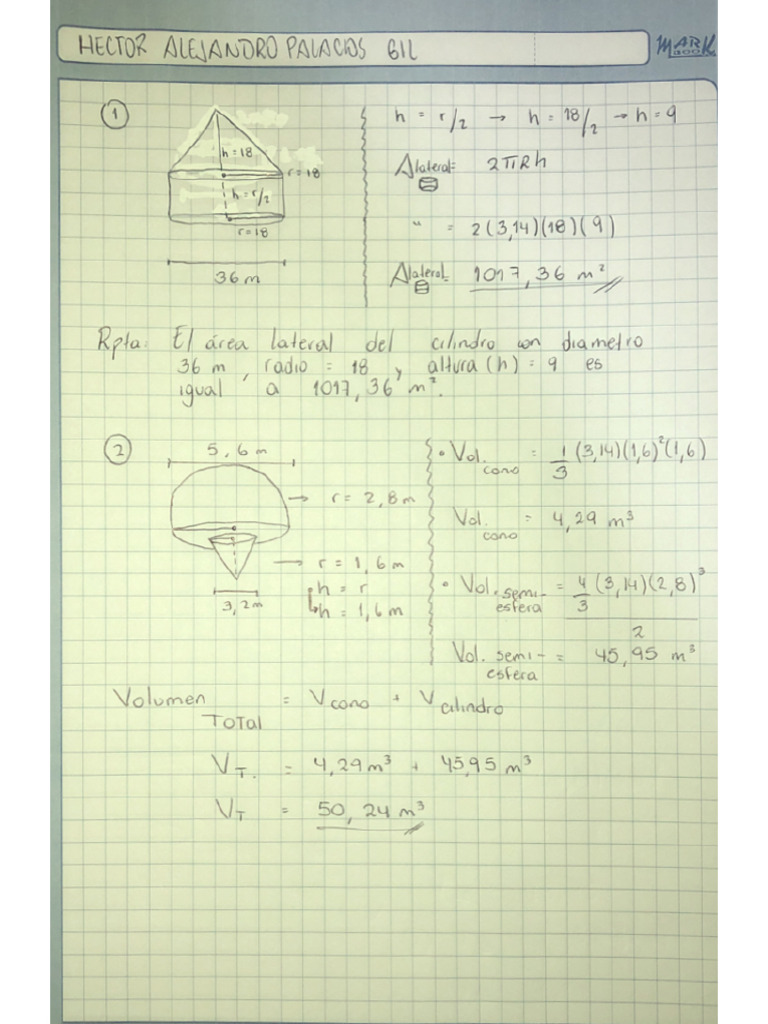 HECTOR ALEJANDRO PALACIOS GIL
MARK
BOOK
1
h = 18
r = 18
h = r/2
r = 18
36 m
h = r/2 → h = 18/2 → h = 9
Alateral = 2πRh
" = 2(3,14)(18)(9)
Alateral = 1017,36 m²
Rpta: El área lateral del cilindro con diametro
36 m, radio = 18 y altura (h) = 9 es
igual a 1017,36 m².
2
5,6 m
→ r = 2,8 m
→ r = 1,6 m
h = r
h = 1,6 m
3,2m
• Vol. cono = 1/3 (3,14)(1,6)²(1,6)
Vol. cono = 4,29 m³
• Vol. semi-esfera = 4/3 (3,14)(2,8)³
2
Vol. semi-esfera = 45,95 m³
Volumen TOTAL = Vcono + Vcilindro
VT. = 4,29 m³ + 45,95 m³
VT = 50,24 m³